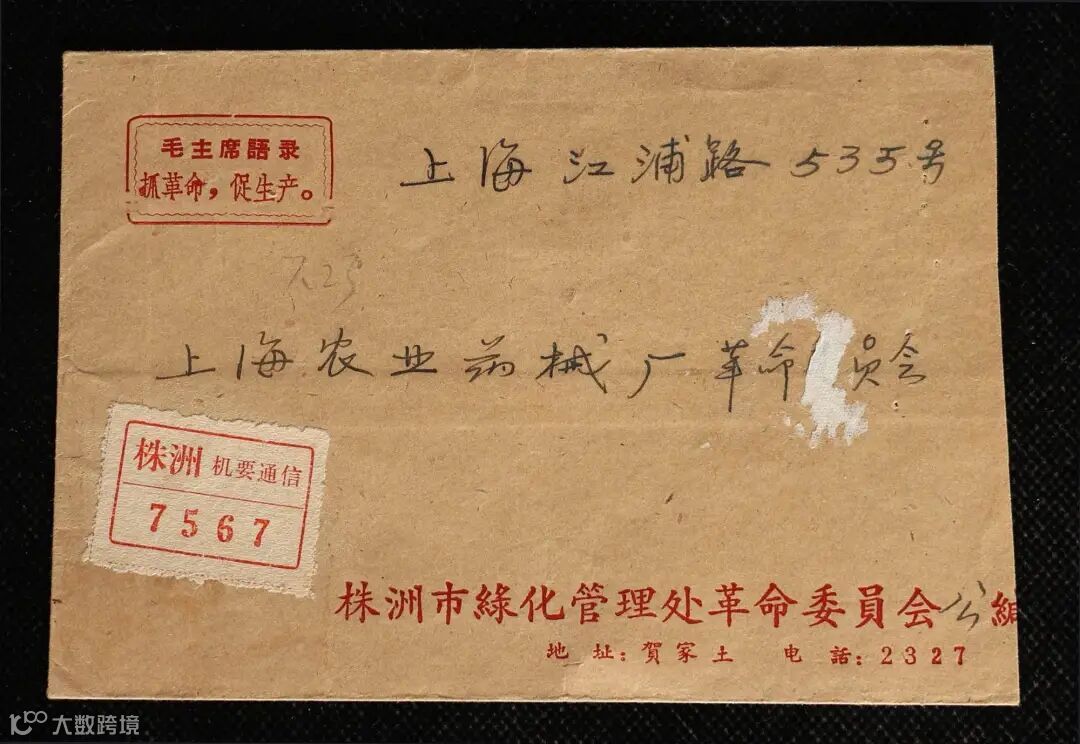 毛主席語录
抓革命，促生产。
上海江浦路535号
上海农业药械厂革命 员会
株洲 机要通信
7567
株洲市綠化管理处革命委員会公緘
地址：賀家土 电話：2327
大数跨境